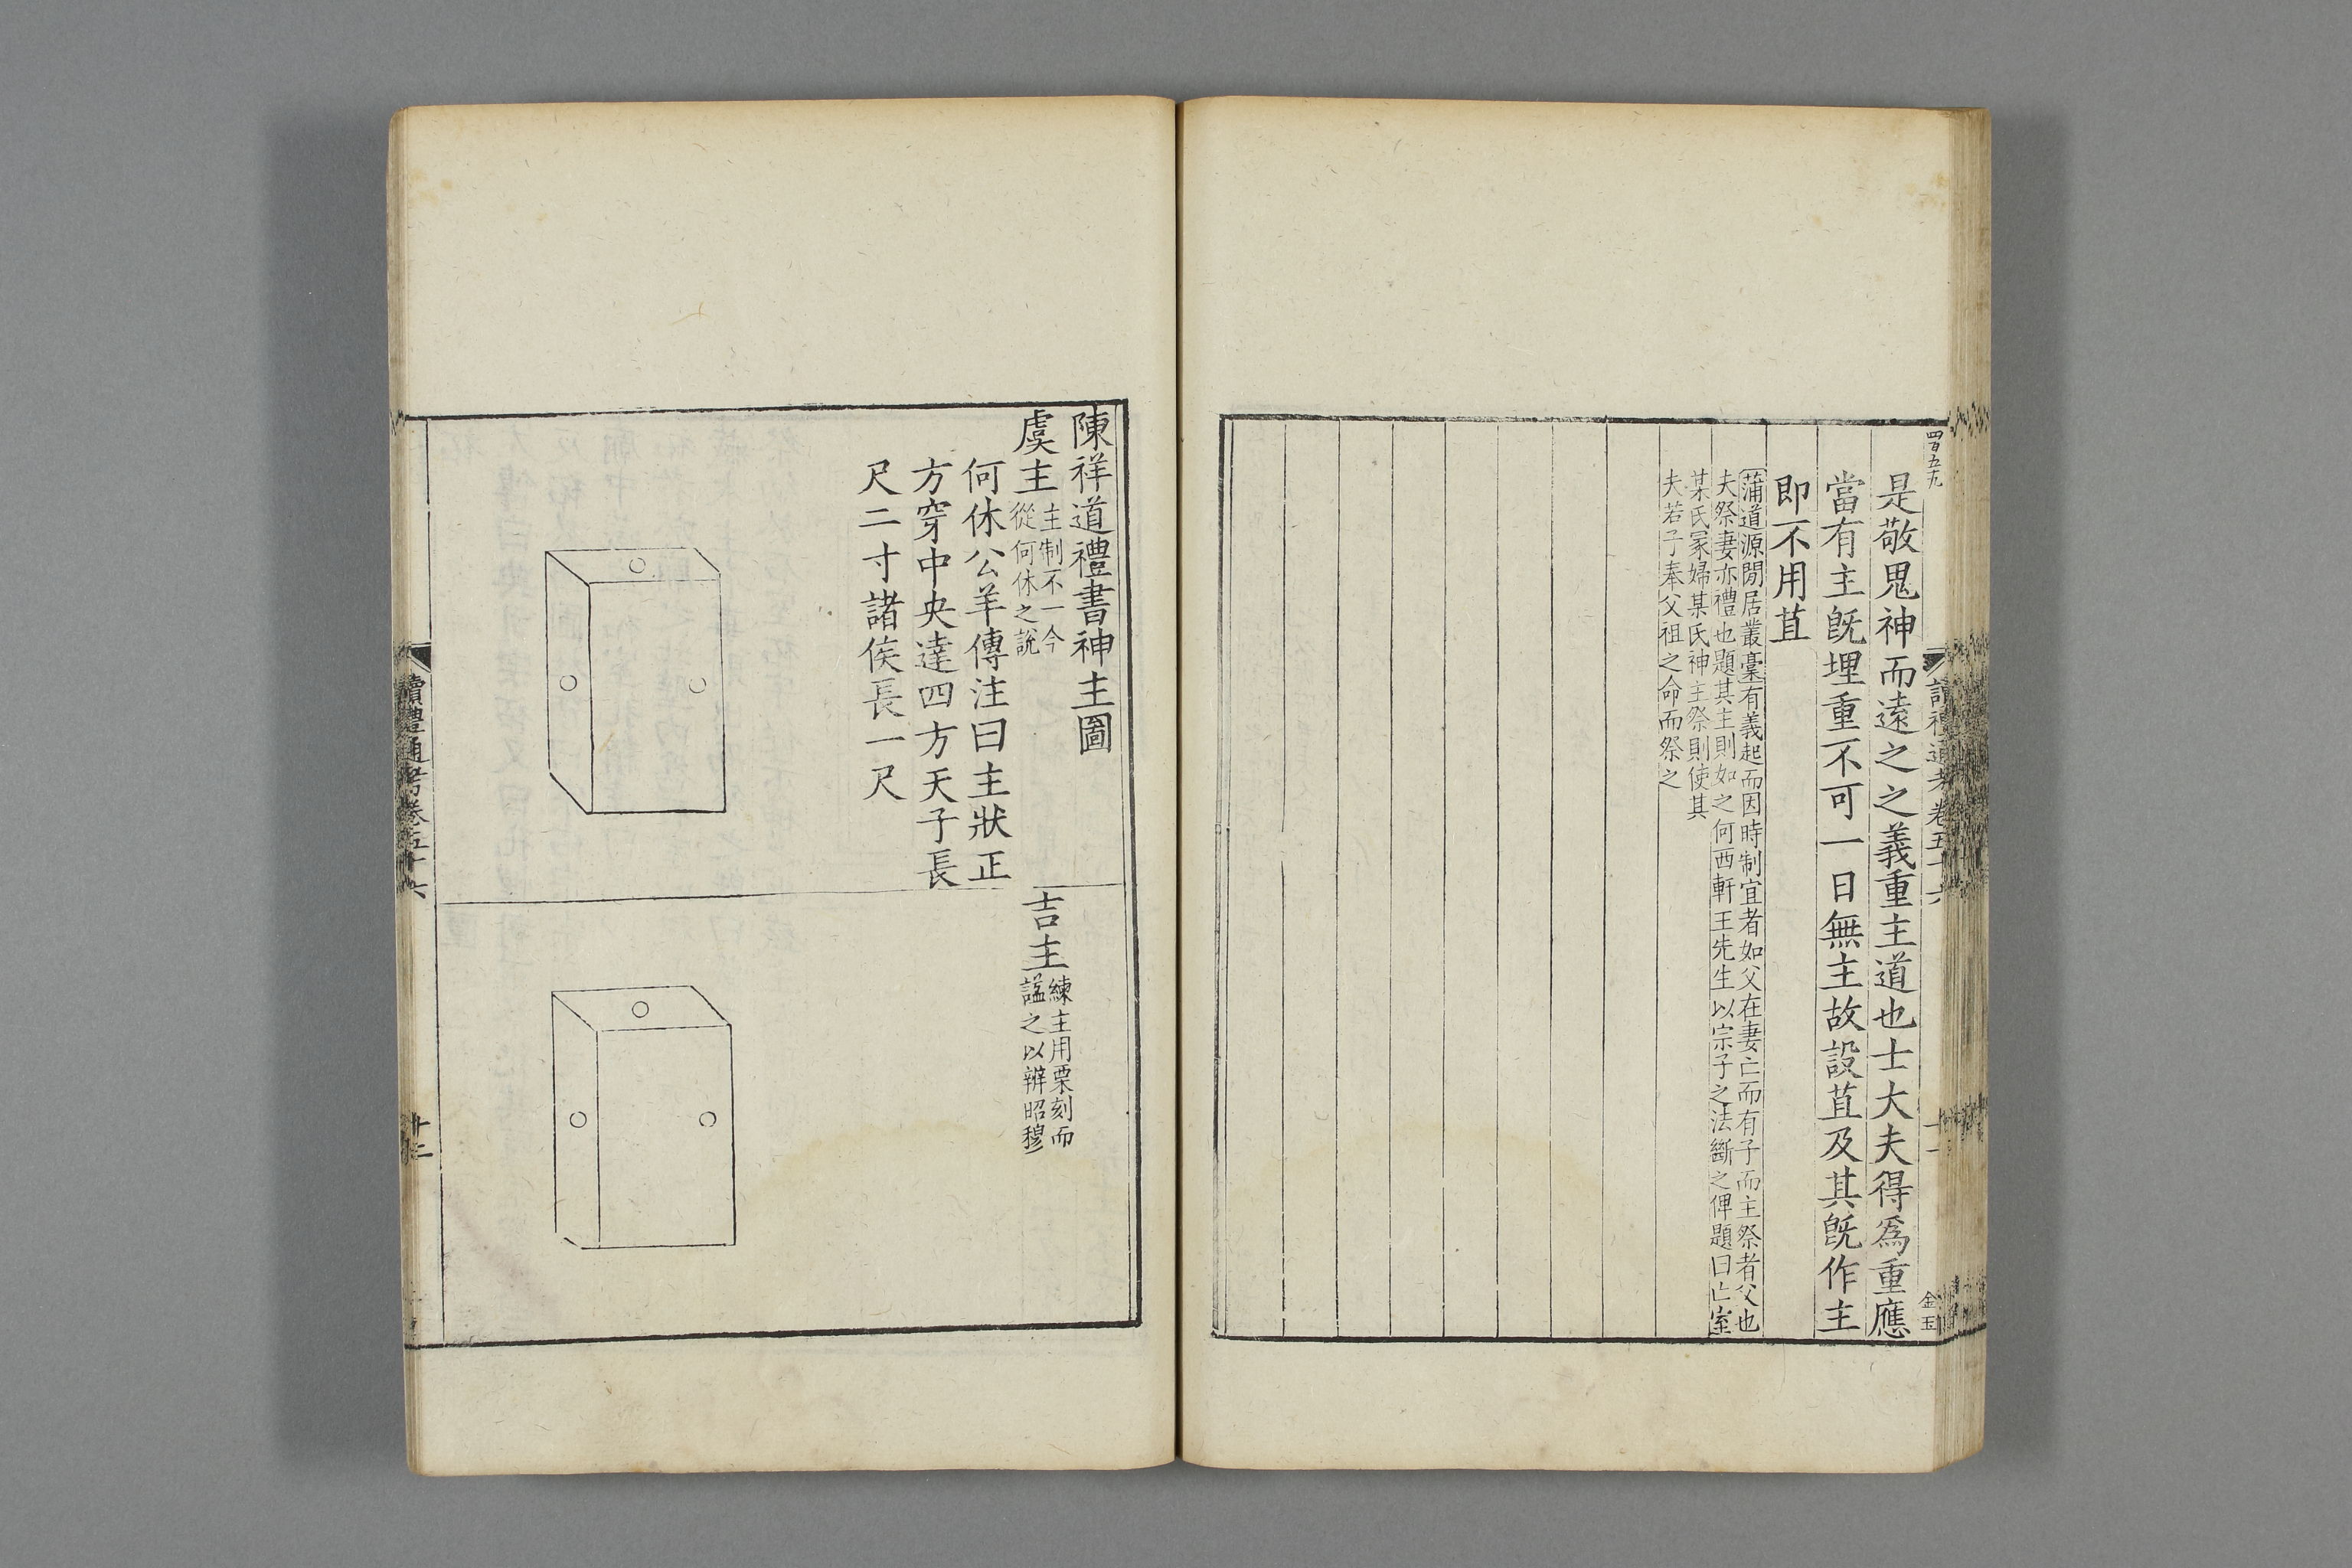 四百五九
讀禮通考卷五十六
十一
金玉
是敬鬼神而遠之之義重主道也士大夫得爲重應
當有主旣埋重不可一日無主故設苴及其旣作主
即不用苴
蒲道源閒居叢稾有義起而因時制宜者如父在妻亡而有子而主祭者父也
夫祭妻亦禮也題其主則如之何西軒王先生以宗子之法斷之俾題曰亡室
某氏冢婦某氏神主祭則使其
夫若子奉父祖之命而祭之
陳祥道禮書神主圖
虞主
主制不一今
從何休之說
何休公羊傳注曰主狀正
方穿中央達四方天子長
尺二寸諸侯長一尺
吉主
練主用栗刻而
謚之以辨昭穆
讀禮通考卷五十六
十二